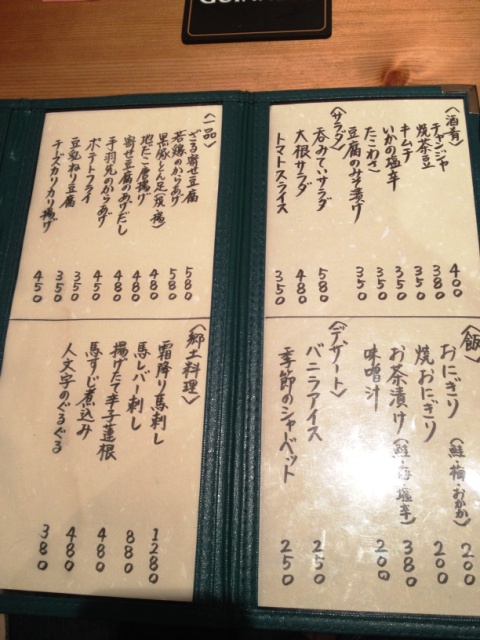 〈酒肴〉
チャンジャ 400
焼茶豆 380
キムチ 350
いかの塩辛 350
たこわさ 350
豆腐のみそ漬け 350
〈サラダ〉
呑みてぃサラダ 580
大根サラダ 480
トマトスライス 350
〈飯〉
おにぎり〈鮭・梅・おかか〉 200
焼おにぎり 200
お茶漬け〈鮭・梅・塩辛〉 380
味噌汁 200
〈デザート〉
バニラアイス 250
季節のシャーベット 250
〈一品〉
ざる寄せ豆腐 580
若鶏のからあげ 580
黒豚とん足(炭焼) 480
地だこ唐揚げ 480
寄せ豆腐のあげだし 480
手羽先のからあげ 450
ポテトフライ 450
豆乳ねり豆腐 350
チーズカリカリ揚げ 450
〈郷土料理〉
霜降り馬刺し 1280
馬レバー刺し 880
揚げたて辛子蓮根 480
馬すじ煮込み 480
人文字のぐるぐる 380